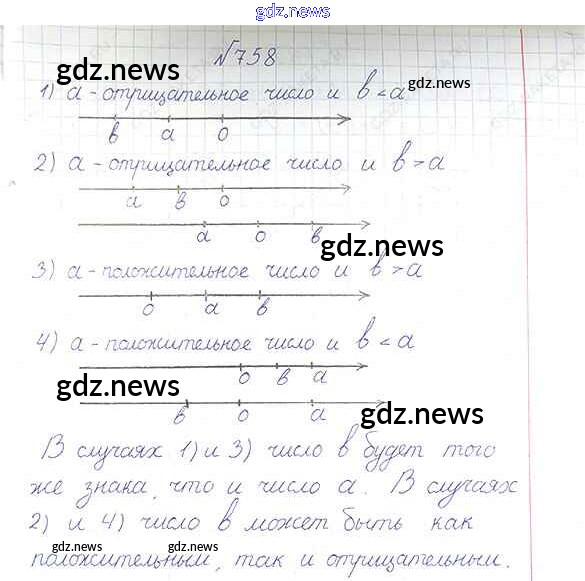 gdz.news
№758
gdz.news
gdz.news
1) а - отрицательное число и в < а
в а 0
2) а - отрицательное число и в > а
а в 0
а 0 в
gdz.news
3) а - положительное число и в > а
0 а в
4) а - положительное число и в < а
0 в а
gdz.news
в 0 а
gdz.news
В случаях 1) и 3) число в будет того
же знака, что и число а. В случаях
2) и 4) число в может быть как
gdz.news gdz.news
положительным, так и отрицательным.